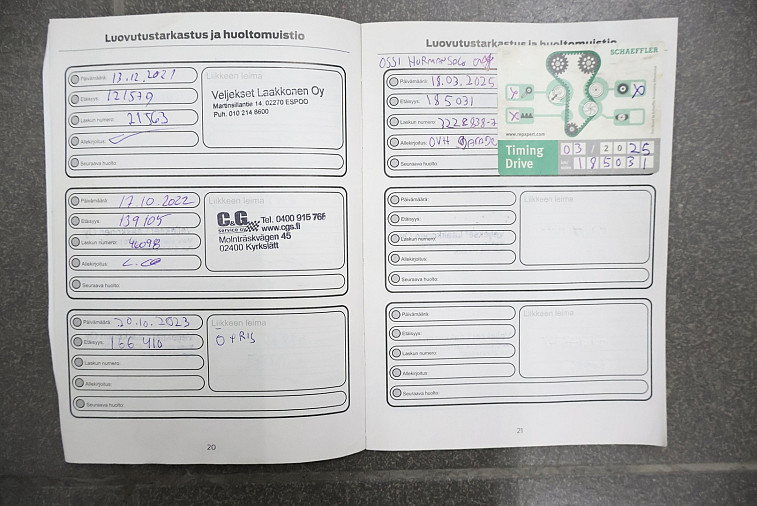 Luovutustarkastus ja huoltomuistio
Päivämäärä: 13.12.2021
Eläisyys: 121579
Laskun numero: 21563
Allekirjoitus:
Seuraava huolto:
Liikkeen leima
Veljekset Laakkonen Oy
Martinsillantie 14, 02270 ESPOO
Puh. 010 214 8600
Päivämäärä: 17.10.2022
Eläisyys: 139105
Laskun numero: 46098
Allekirjoitus:
Seuraava huolto:
Liikkeen leima
C&G Tel. 0400 915 768
Service Oy www.cgs.fi
Molnträskvägen 45
02400 Kyrkslätt
Päivämäärä: 20.10.2023
Eläisyys: 166 410
Laskun numero:
Allekirjoitus:
Seuraava huolto:
Liikkeen leima
Ö + RIS
20
Luovutustarkastus ja huoltomuistio
OSSI
Päivämäärä: 18.03.2025
Eläisyys: 185031
Laskun numero:
Allekirjoitus: OVH
Seuraava huolto:
SCHAEFFLER
www.repxpert.com
Timing Drive
03 / 2025
185031
Päivämäärä:
Eläisyys:
Laskun numero:
Allekirjoitus:
Seuraava huolto:
Liikkeen leima
Päivämäärä:
Eläisyys:
Laskun numero:
Allekirjoitus:
Seuraava huolto:
Liikkeen leima
21